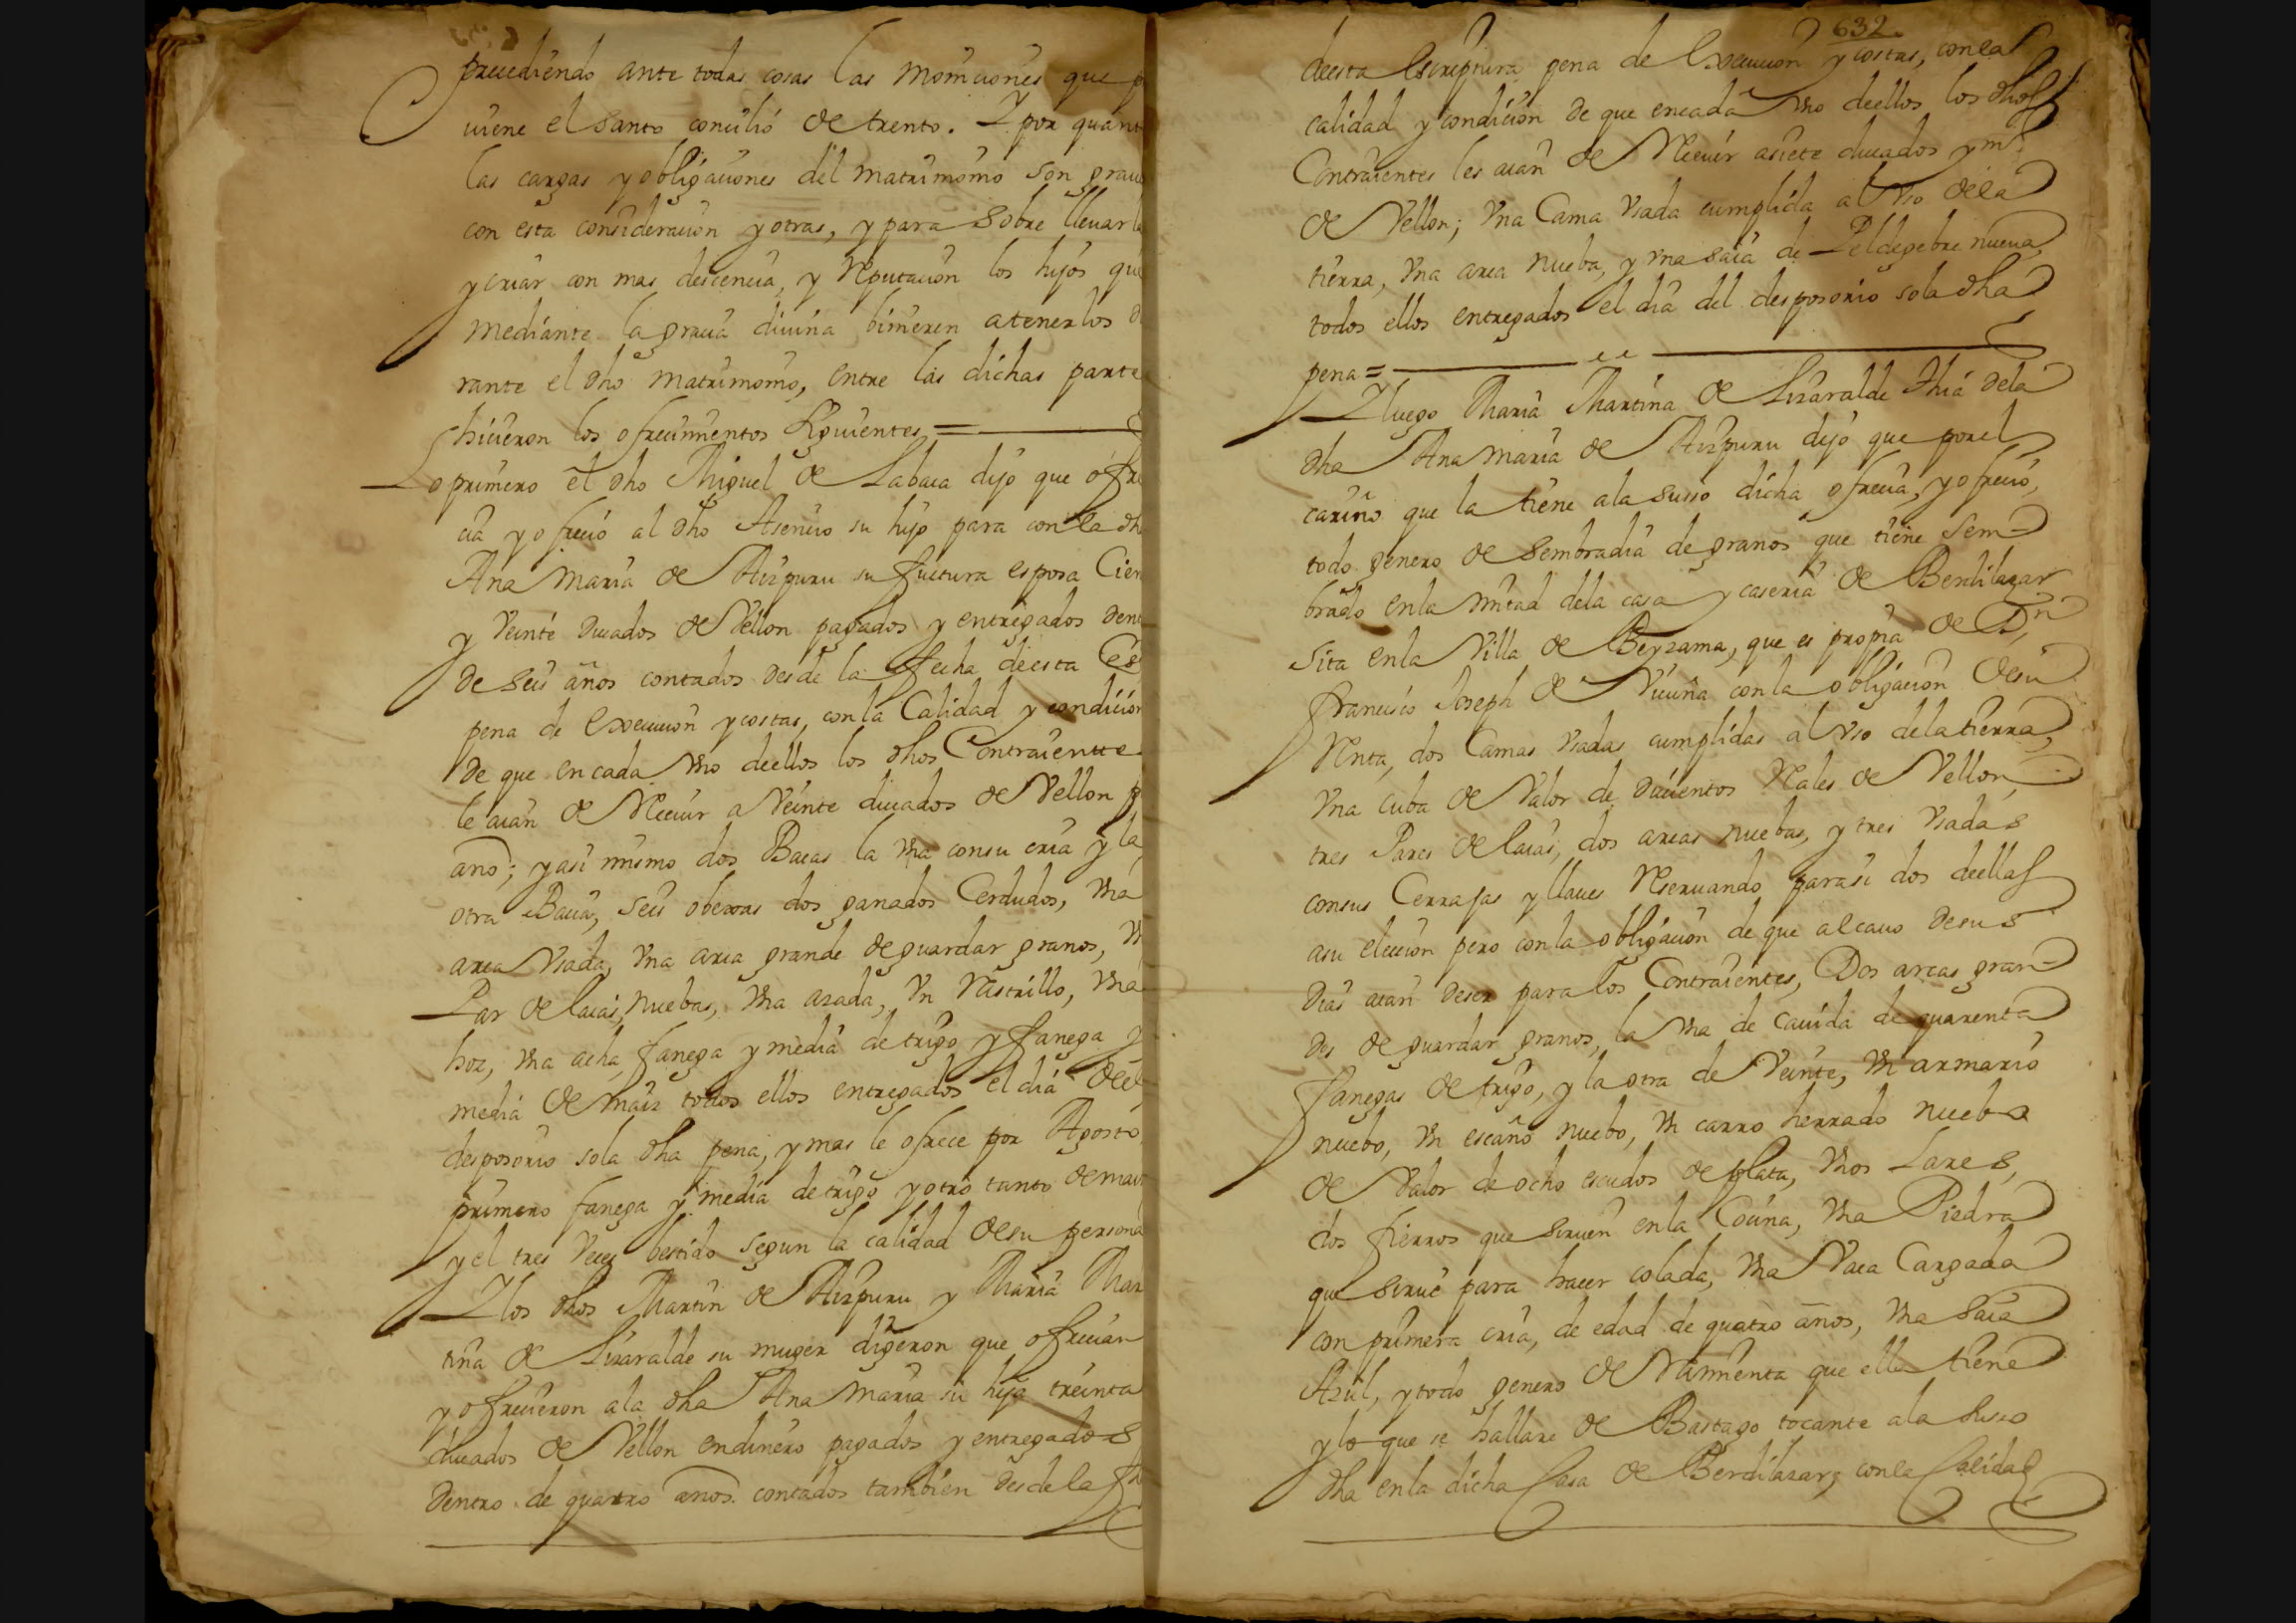 precediendo ante todas cosas las moniciones que p
uiene el santo concilio de trento. Y por quant
las cargas y obligaciones del matrimonio son graue
con esta consideracion y otras, y para sobre lleuarla
y criar con mas descencia, y Reputacion los hijos que
mediante la gracia diuina binieren a tenerlos d
rante el dho matrimonio, entre las dichas parte
hicieron los ofrecimientos siguientes =
Lo primero el dho Miguel de Labaca dijo que ofre
cia y ofrecio al dho Asencio su hijo para con la dha
Ana Maria de Aizpuru su fuctura esposa Cien
y Veinte Ducados de Vellon pagados y entregados dent
de seis años contados desde la fecha de esta Es
pena de Execucion y costas, con la Calidad y condicion
de que en cada Vno de ellos los dhos Contraiente
le aian de Reciuir a Veinte ducados de Vellon p
año; y asi mismo dos Bacas la Vna con su cria y la
otra Bacia, seis obexas dos ganados Cerdudos, Vna
arca Vsada, Vna arca grande de guardar granos, V
Par de laias nuebas, Vna azada, Vn Rastrillo, Vna
hoz, Vna acha, fanega y media de trigo y fanega y
media de maiz todos ellos entregados el dia del
desposorio so la dha pena, y mas le ofrece por Agosto
primero fanega y media de trigo y otro tanto de mai
y el tres Veces bestido segun la calidad de su persona
Y los dhos Martin de Aizpuru y Maria Mar
tina de Lizaralde su muger digeron que ofrecian
y ofrecieron a la dha Ana Maria su hija treinta
ducados de Vellon en dinero pagados y entregados
dentro de quatro años contados tambien desde la fh
632.
de esta Escriptura pena de Execucion y costas, con la
calidad y condicion de que en cada Vno de ellos los dhos
Contraientes les aian de Reciuir a siete ducados y m.º
de Vellon; Vna Cama Vsada cumplida al Vso de la
tierra, Vna arca nueba, y vna saia de Peldegebre nueua,
todos ellos entregados el dia del desposorio so la dha
pena =
Y luego Maria Martina de Lizaralde Thia de la
dha Ana Maria de Aizpuru dijo que por el
cariño que la tiene a la suso dicha ofrecia, y ofrecio,
todo genero de sembradia de granos que tiene sem
brado en la mitad de la casa y caseria de Berdilazar
sita en la Villa de Beyzama, que es propia de Dn
Francisco Joseph de Vicuña con la obligacion de su
Renta, dos Camas Vsadas cumplidas al Vso de la tierra,
Vna cuba de Valor de Ducientos Reales de Vellon,
tres Pares de laias, dos arcas nuebas, y tres Vsadas
con sus Cerrajas y llaues Reseruando para si dos de ellas
a su eleccion pero con la obligacion de que al cauo de sus
Dias aian de ser para los Contraientes, Dos arcas gran
des de guardar granos, la Vna de cauida de quarenta
fanegas de trigo, y la otra de Veinte, Vn armario
nuebo, Vn escaño nuebo, Vn carro herrado nuebo
de Valor de ocho escudos de plata, Vnos Lares,
dos fierros que siruen en la Cocina, Vna Piedra
que sirue para hacer colada, Vna Vaca Cargada
con primera cria, de edad de quatro años, Vna saia
Azul, y todo genero de Ramienta que ella tiene
y lo que se hallare de Bastago tocante a la suso
dha en la dicha Casa de Berdilazar, con la Calidad